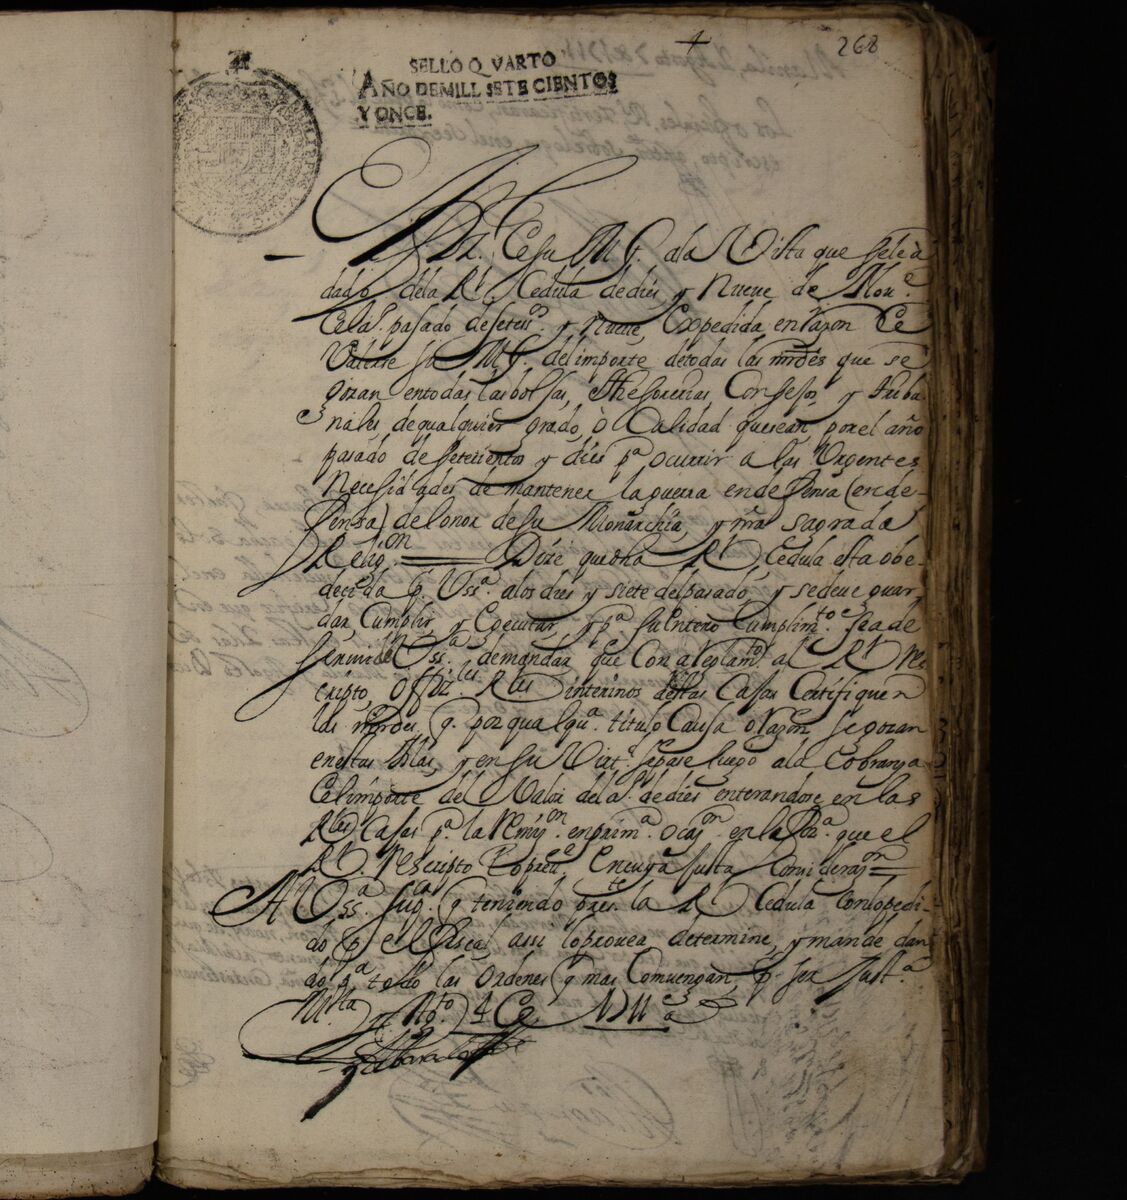 268
SELLO QVARTO
AÑO DE MILL SETECIENTOS
Y ONCE.
de su Mg. a la Vista que se le à
dado de la Rl. Cedula de dies y Nueve de Nou.e
pasado de setecos. y Nueve Expedida en razon de
Valerse su Mg. del importe de todas las mrdes que se
gozan en todas las bolsas, Thesorerias, Consejos, y tribu-
nales de qualquier grado, ò Calidad que sean, por el año
pasado de setecientos y dies pa. ocurrir a las Urgentes
Necesidades de mantener la guerra en defensa (en de-
fensa) del onor de su Monarchia, y nra sagrada
Relig.on Dize que dha Rl. Cedula esta obe-
decida p. Vssa. a los dies y siete del pasado, y se deue guar-
dar, Cumplir, y Executar, y pa. su entero Cumplim.to sea de
seruir Vssa. demandar que Con arreglam.to al Rl. Res-
cripto, offiz.les Rles interinos destas Casas Certifiquen
las mrdes q. por qualqa. titulo Causa o razon se gozan
en estas Islas, y en su Virt. se pase luego a la Cobranza
del importe del Valor del a. de dies enterandose en las
Rles Casas pa. la Remiss.on en prima. ocas.on en la for.a que el
Rl. Rescripto Expreça, en cuya justa Consideraz.on
A Vssa. supca. q teniendo preste. la Rl. Cedula Con lo pedi-
do p. el Fiscal assi lo prouea determine, y mande dan
do pa. todo las Ordenes q mas Comuengan p. ser Justa.
M.la y Ag.to 4 de 1711 as